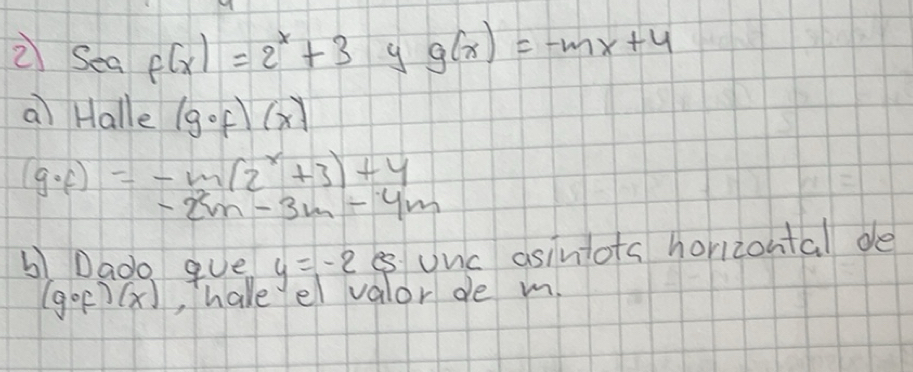 2) Sea f(x) = 2ˣ + 3 y g(x) = -mx + 4
a) Halle (g∘f)(x)
(g∘f) = -m(2ˣ + 3) + 4
-2ˣm - 3m - 4m
b) Dado que y = -2 es una asintota horizontal de
(g∘f)(x), halle el valor de m.